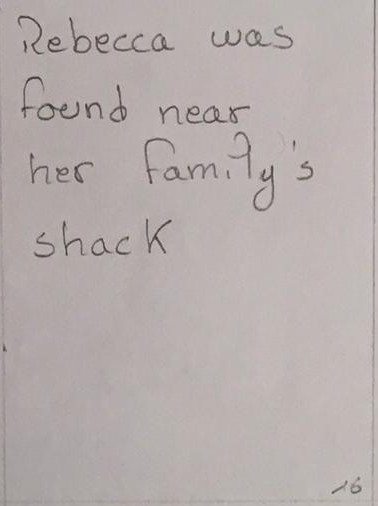 Rebecca was
found near
her family's
shack
16